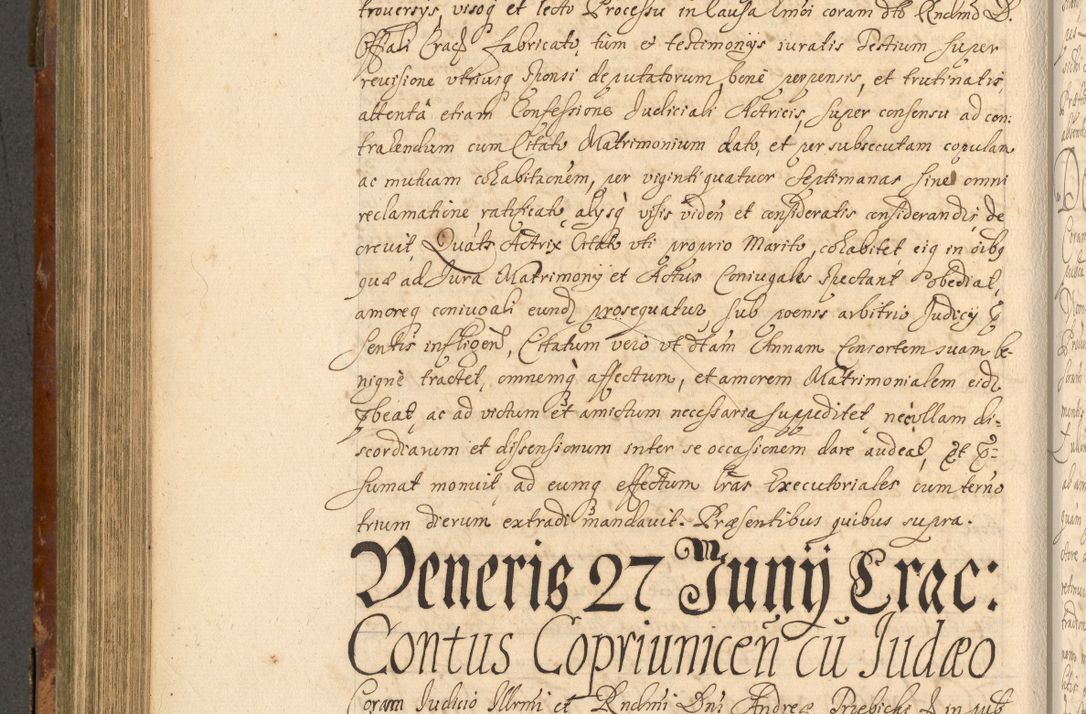 troversÿs, visoq et lecto Processu in Causa Imõi coram dto Rndmo D.
Offali Crac̃ fabricato, tum et testimonÿs iuratis Testium super
revisione vtriusq Sponsi deputatorum, bene perpensis, et trutinatis,
attenta etiam Confessione Iudiciali Actricis, super consensu ad con:
trahendum cum Citato Matrimonium dato, et per subsecutam copulam
ac mutuam cohabitacnem, per viginti quatuor Septimanas sine omni
reclamatione ratificato, alÿsq visis viden et consideratis considerandis de
crevit, Quatẽ Actrix Citato vti proprio Marito, cohabitet, eiq in oĩbq
quæ ad Iura Matrimonÿ et Actus Coniugales spectant obediat,
amoreq coniugali eund prosequatur sub poenis arbitrio Iudicÿ
sentis infligen, Citatum vero vt dtam Annam Consortem suam be-
nigne tractet, omnemq affectum, et amorem Matrimonialem eid
beat, ac ad victum et amictum necessaria suppeditet, nec vllam di-
scordiarum et dissensionum inter se occasionem dare audeat,
sumat monuit, ad eumq effectum lras Executoriales cum terno
trium dierum extradi mandavit. Præsentibus quibus supra.
Veneris 27 Junÿ Crac:
Contus Copriunicen̄ cū Iudæo
Coram Iudicio Illrmi et Rndmi Dni Andreæ Trzebicki D in pub